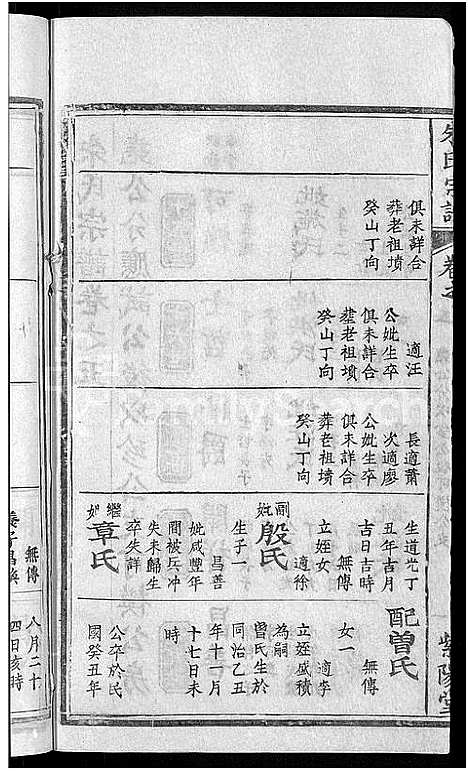 朱氏宗譜
卷之
紫陽堂
俱未詳合
葬老祖墳
癸山丁向
適汪
公妣生卒
俱未詳合
塟老祖墳
癸山丁向
長適蕭
次適廖
公妣生卒
俱未詳合
葬老祖墳
癸山丁向
生道光丁
丑年吉月
吉日吉時
無傳
立姪女
適徐
副妣
殷氏
生子一
昌善
妣咸豐年
間被兵冲
失未歸生
卒失詳
繼妣
章氏
配曽氏
無傳
女一
適李
立姪盛積
為嗣
曽氏生於
同治乙丑
年十一月
十七日未
時
公卒於民
國癸丑年
無傳
八月二十
四日亥時